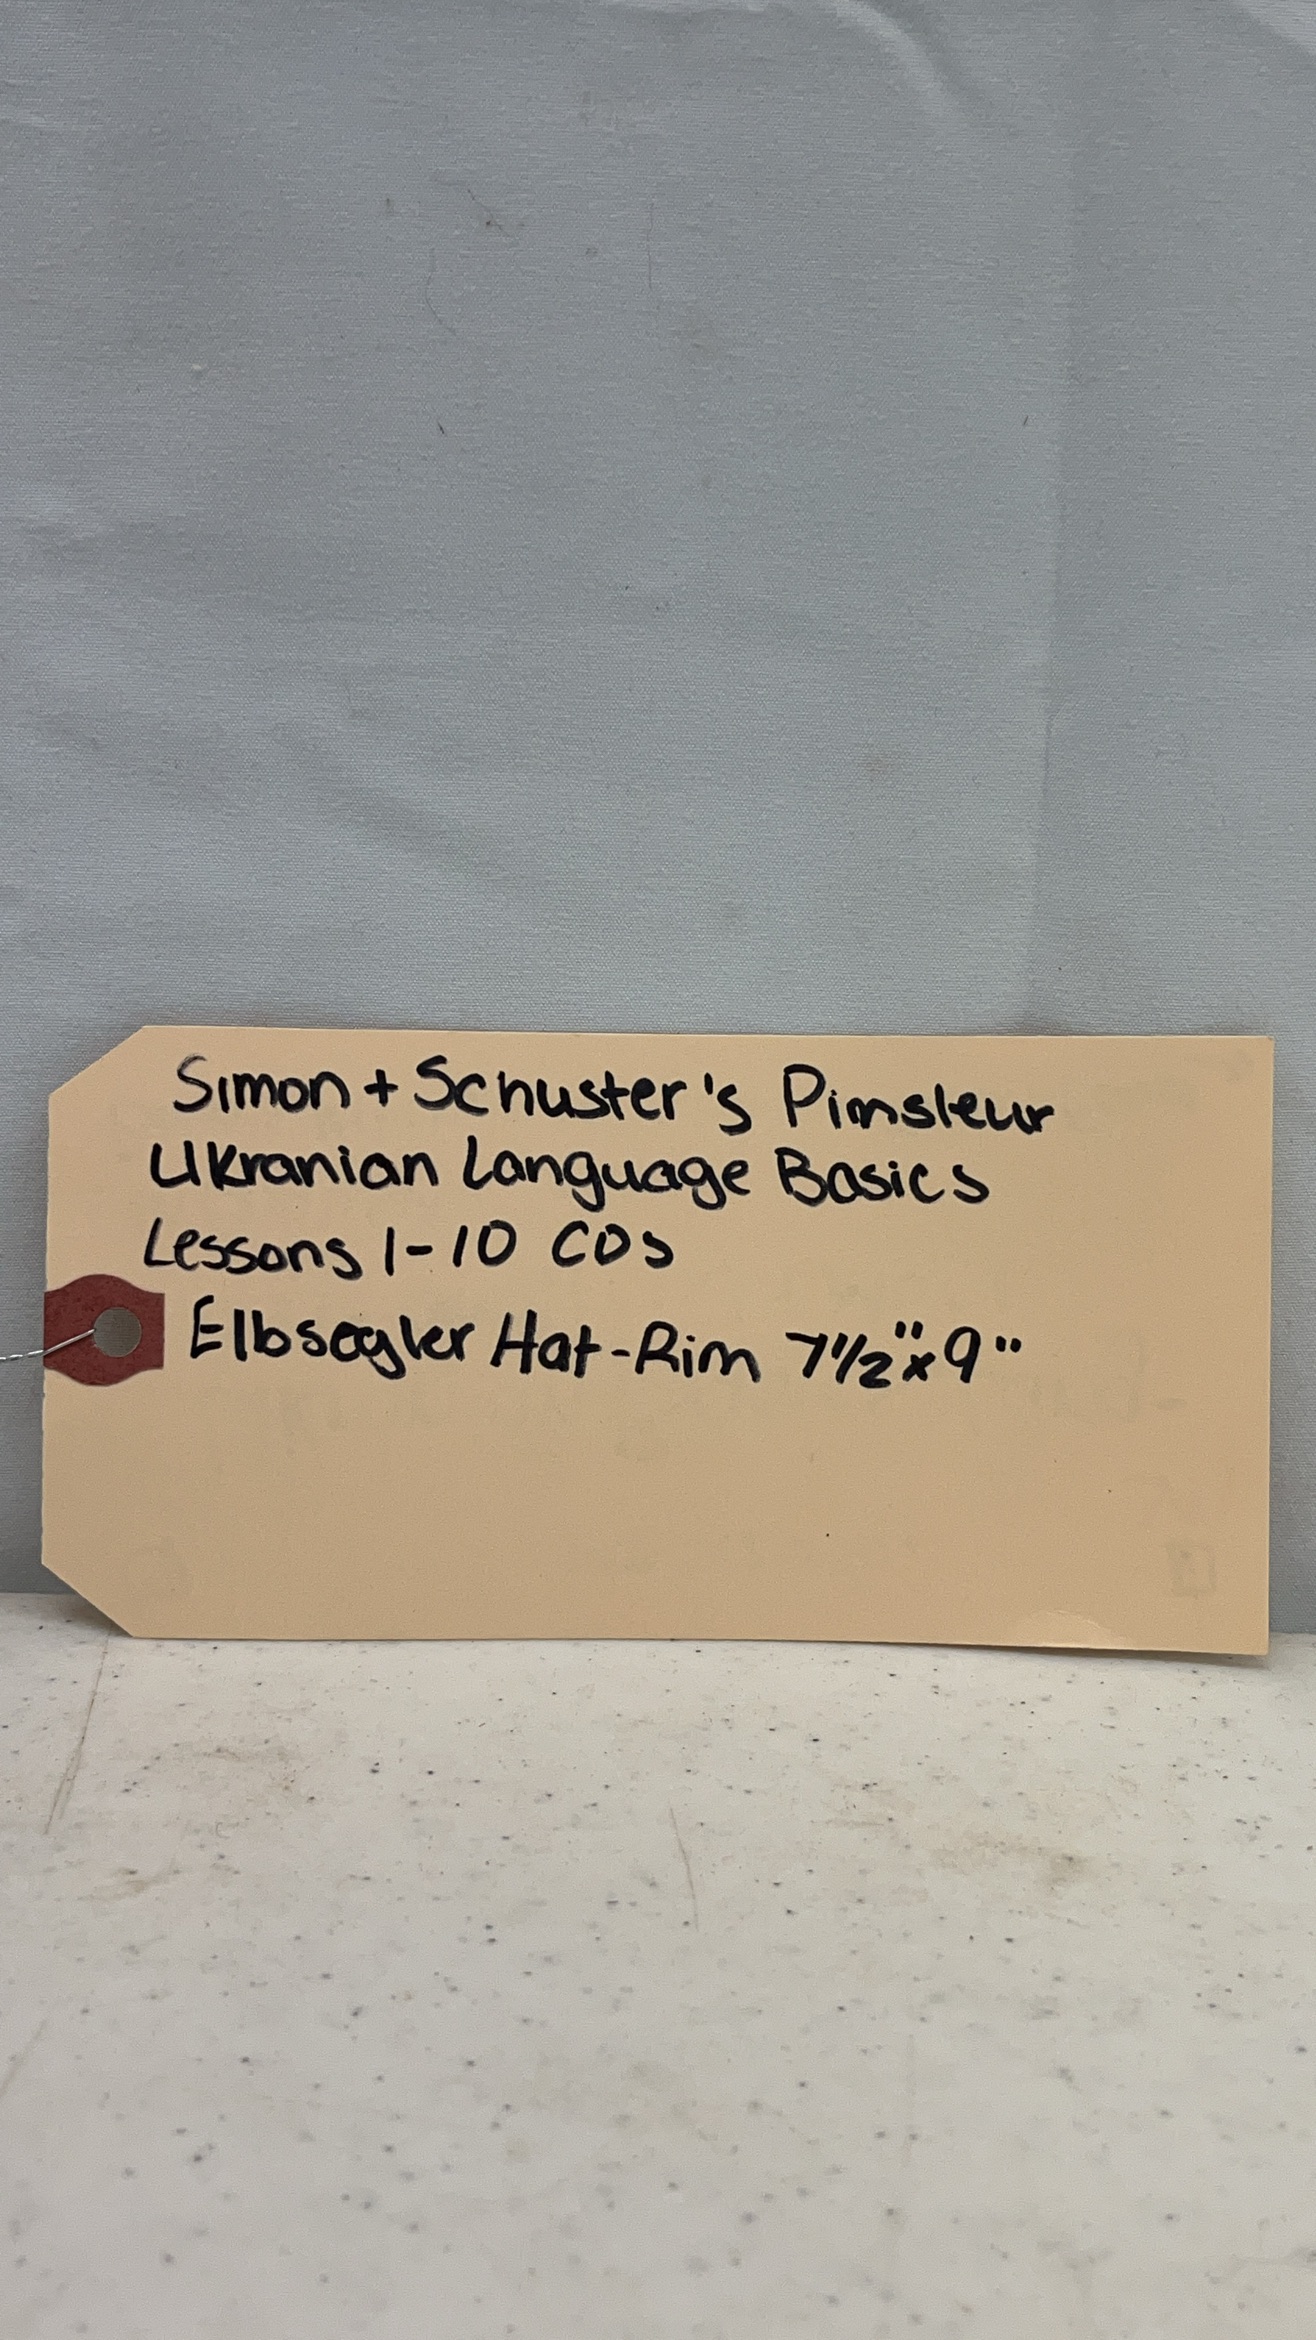 Simon + Schuster's Pimsleur
Ukranian Language Basics
Lessons 1-10 CDs
Elbsegler Hat-Rim 7 1/2" x 9"